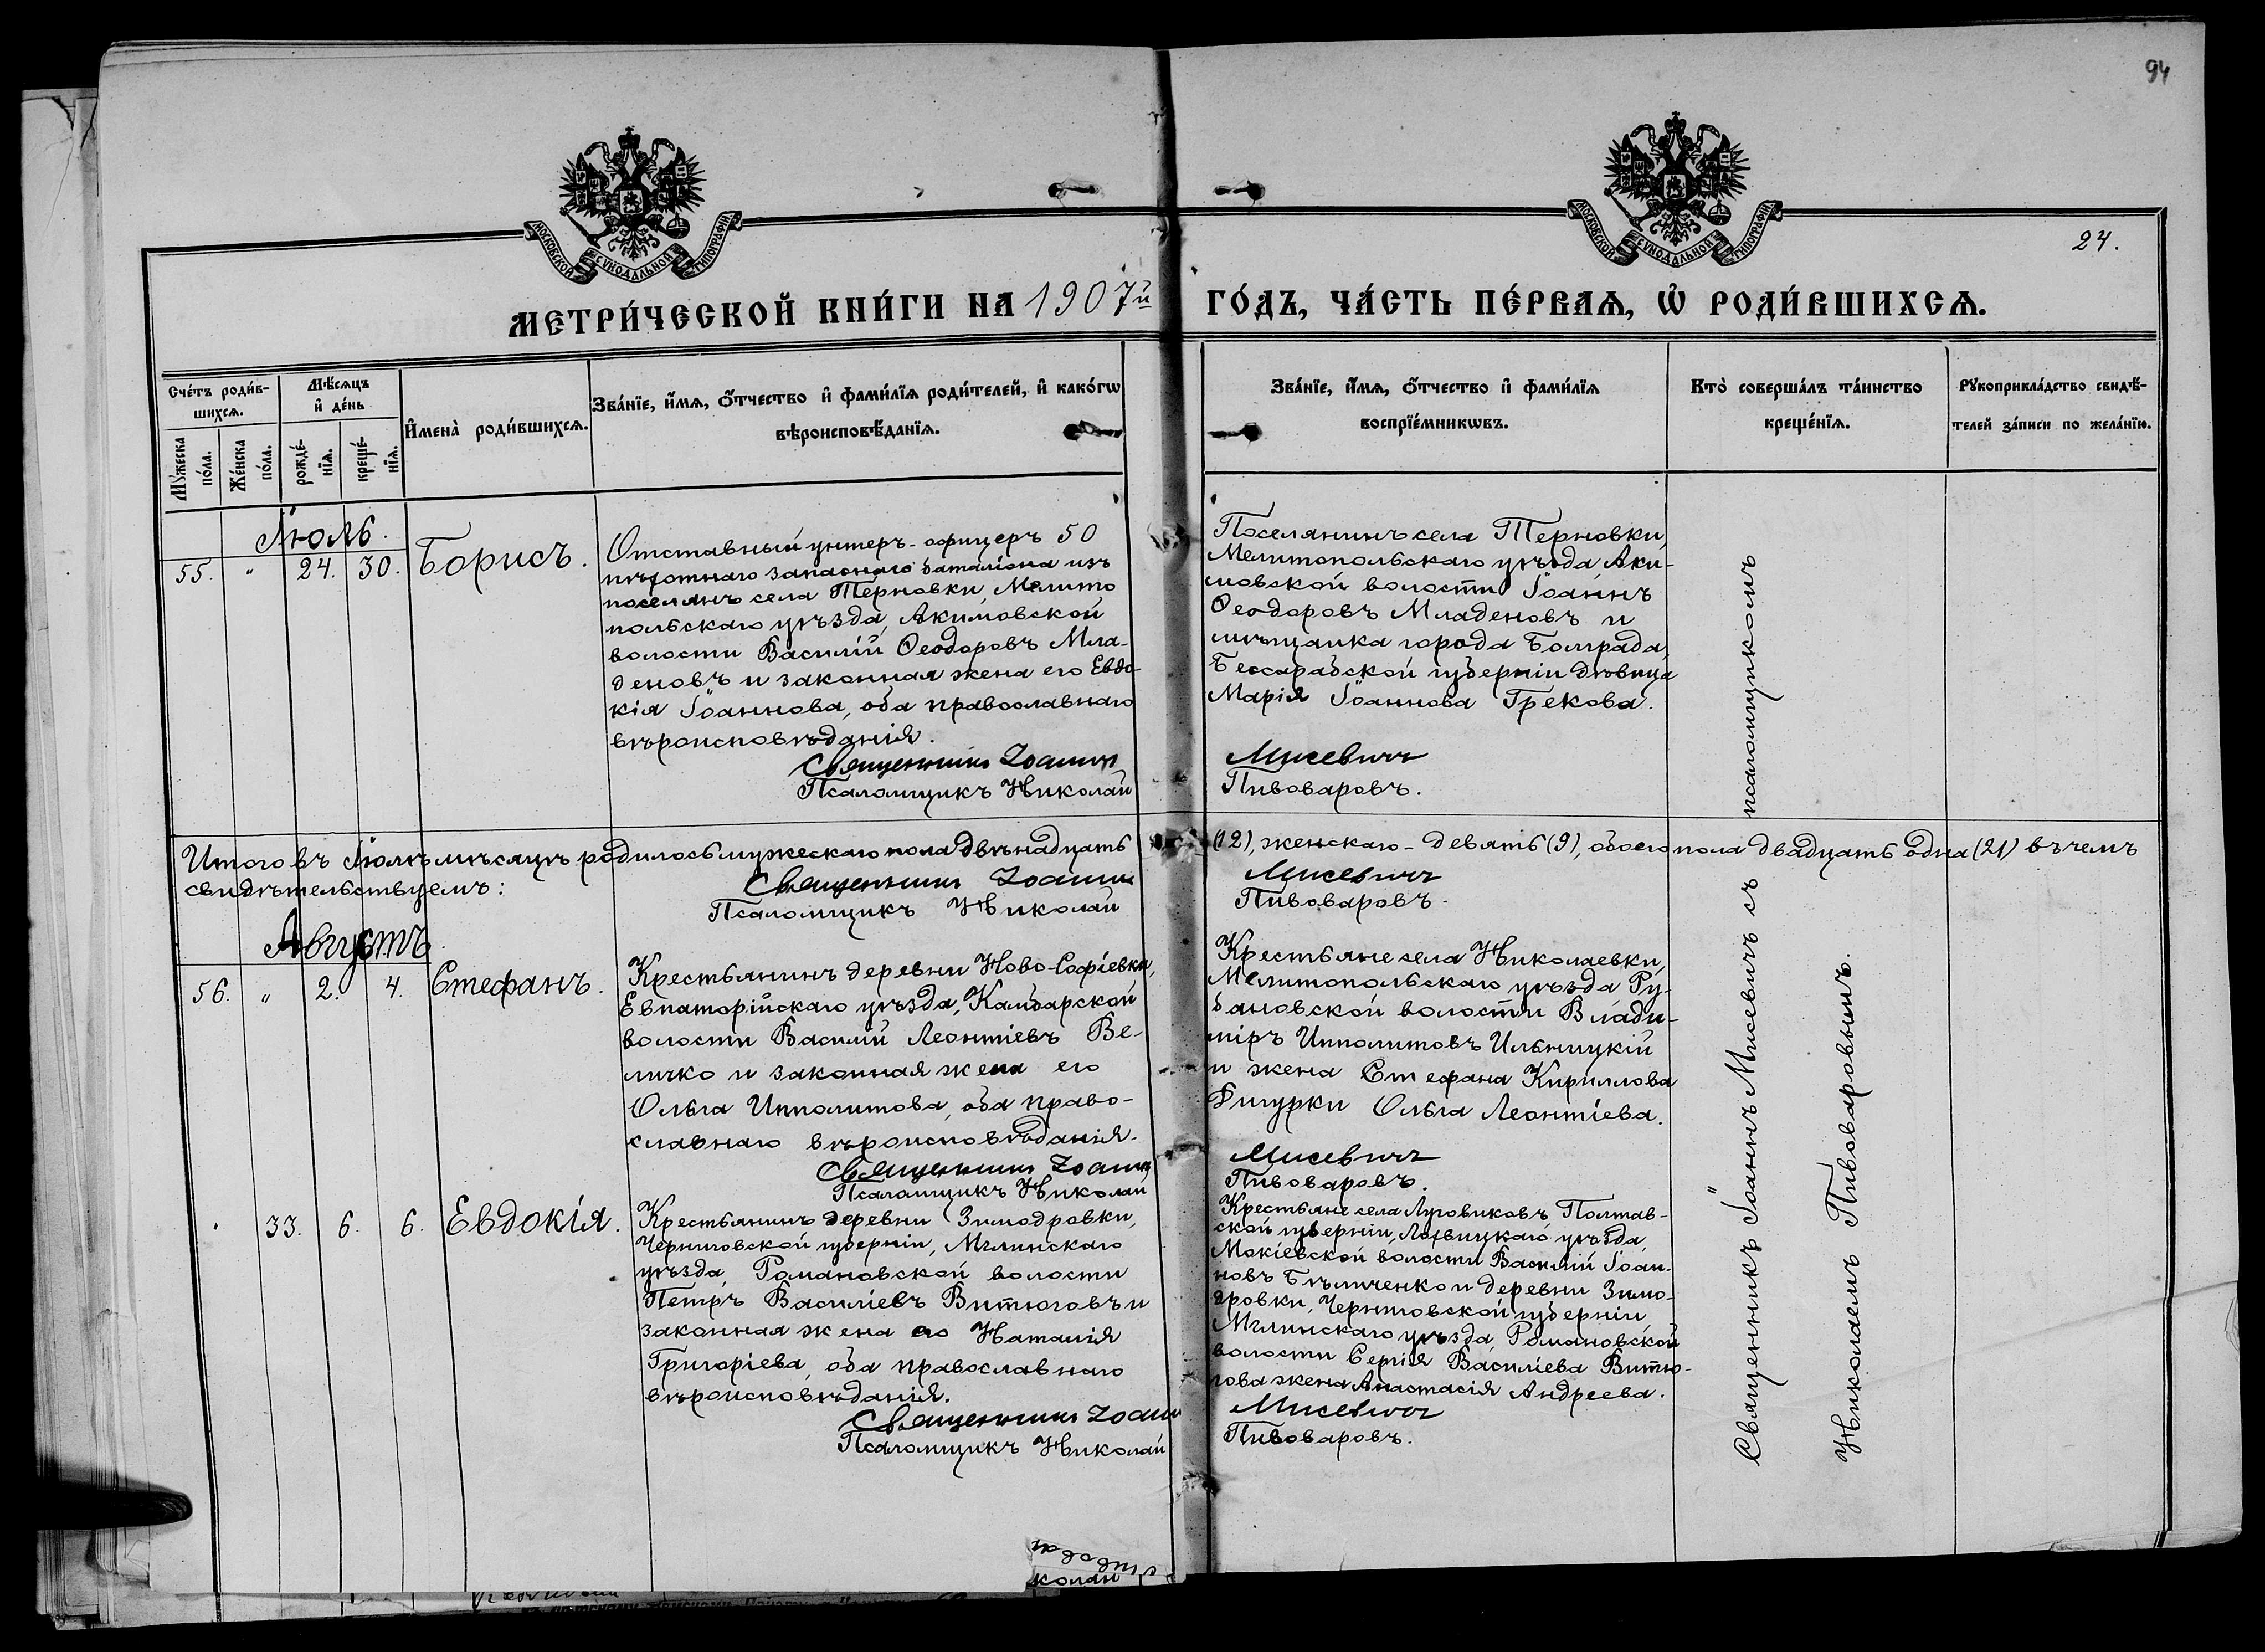 94
МОСКОВСКОЙ СУНОДАЛЬНОЙ ТИПОГРАФІИ
МОСКОВСКОЙ СУНОДАЛЬНОЙ ТИПОГРАФІИ
24.
МЕТРИ́ЧЕСКОЙ КНИ́ГИ НА 1907й ГО́ДЪ, ЧА́СТЬ ПЕ́РВАѦ, Ѡ҆ РОДИ́ВШИХСѦ.
Сче́тъ роди́в-
шихсѧ.
Мꙋ́жеска
по́ла.
Же́нска
по́ла.
Мѣ́сѧцъ
и҆ де́нь
рожде́-
нїѧ.
креще́-
нїѧ.
И҆мена̀ роди́вшихсѧ.
Зва́нїе, и҆́мѧ, ѻ҆́тчество и҆ фами́лїѧ роди́телей, и҆ како́гѡ
вѣроисповѣ́данїѧ.
Зва́нїе, и҆́мѧ, ѻ҆́тчество и҆ фами́лїѧ
воспрїе́мникѡвъ.
Кто̀ соверша́лъ та́инство
креще́нїѧ.
Рꙋкоприкла́дство свидѣ́-
телей за́писи по жела́нїю.
Іюль.
55. " 24. 30. Борисъ.
Отставный унтеръ-офицеръ 50
пѣхотнаго запаснаго баталіона изъ
поселянъ села Терновки, Мелито
польскаго уѣзда, Акимовской
волости Василій Ѳеодоровъ Мла-
деновъ и законная жена его Евдо-
кія Іоаннова, оба православнаго
вѣроисповѣданія.
Священникъ Іоаннъ
Псаломщикъ Николай
Поселянинъ села Терновки,
Мелитопольскаго уѣзда, Аки-
мовской волости Іоаннъ
Ѳеодоровъ Младеновъ и
мѣщанка города Болграда,
Бессарабской губерніи дѣвица
Марія Іоаннова Грекова.
Мисевичъ
Пивоваровъ.
Итого въ Іюлѣ мѣсяцѣ родилось мужескаго пола двѣнадцать (12), женскаго - девять (9), обоего пола двадцать одна (21) въ чемъ
свидѣтельствуемъ:
Священникъ Іоаннъ Мисевичъ
Псаломщикъ Николай Пивоваровъ.
Августъ
56. " 2. 4. Стефанъ.
Крестьянинъ деревни Ново-Софіевки,
Евпаторійскаго уѣзда, Камбарской
волости Василій Леонтіевъ Ве-
личко и законная жена его
Ольга Ипполитова, оба право-
славнаго вѣроисповѣданія.
Священникъ Іоаннъ
Псаломщикъ Николай
Крестьяне села Николаевки,
Мелитопольскаго уѣзда Ру-
бановской волости Влади-
міръ Ипполитовъ Ильницкій
и жена Стефана Кириллова
Фигурки Ольга Леонтіева.
Мисевичъ
Пивоваровъ.
" 33. 6. 6. Евдокія.
Крестьянинъ деревни Зимодровки,
Черниговской губерніи, Мглинскаго
уѣзда, Романовской волости
Петръ Василіевъ Витюговъ и
законная жена его Наталія
Григоріева, оба православнаго
вѣроисповѣданія.
Священникъ Іоаннъ
Псаломщикъ Николай
Крестьяне села Луговиковъ, Полтав-
ской губерніи, Лохвицкаго уѣзда,
Мокіевской волости Василій Іоан-
новъ Бѣличенко и деревни Зимо-
дровки, Черниговской губерніи,
Мглинскаго уѣзда, Романовской
волости Сергія Василіева Витю-
гова жена Анастасія Андреева.
Мисевичъ
Пивоваровъ.
Священникъ Іоаннъ Мисевичъ съ псаломщикомъ
Николаемъ Пивоваровымъ.
колай